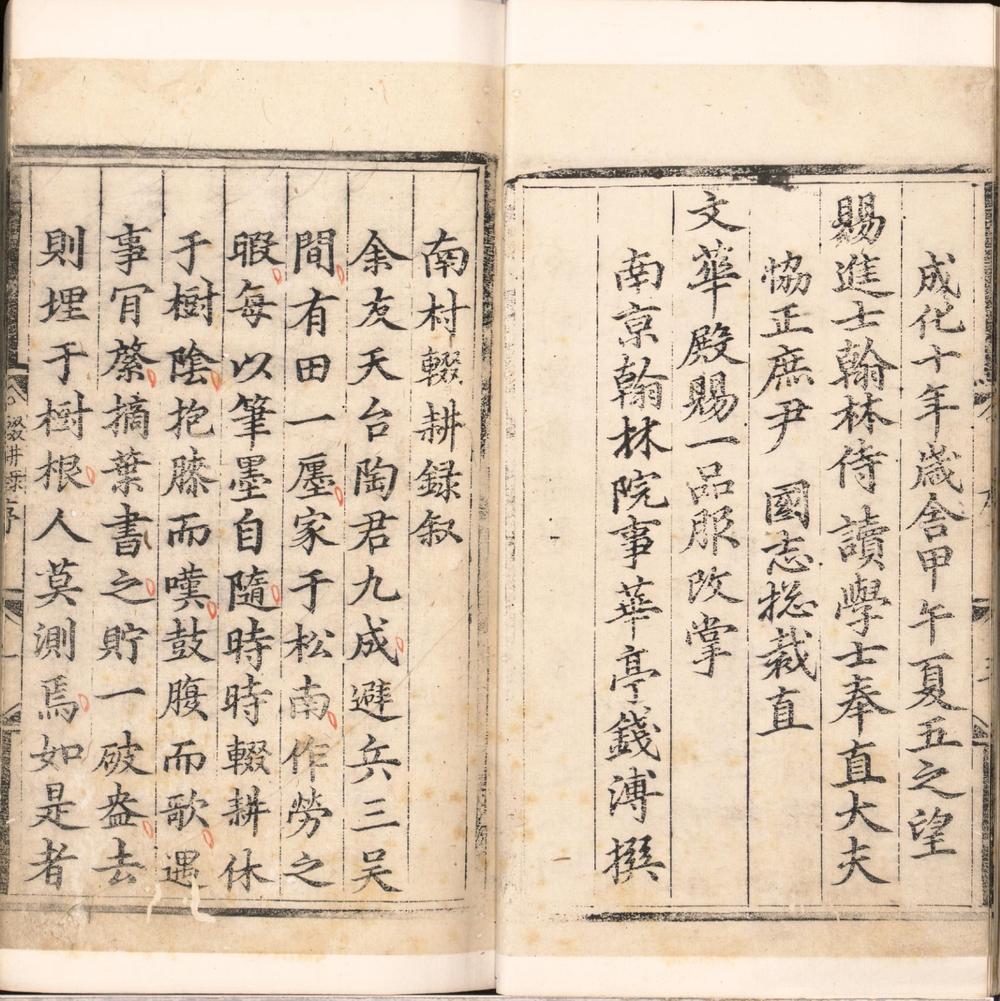 成化十年歲舍甲午夏五之望
賜進士翰林侍讀學士奉直大夫
恊正庶尹　國志捴裁直
文華殿賜一品服改掌
南京翰林院事華亭錢溥撰
南村輟耕録叙
余友天台陶君九成避兵三吴
間有田一廛家于松南作勞之
暇每以筆墨自隨時時輟耕休
于樹陰抱膝而嘆鼓腹而歌遇
事肎綮摘葉書之貯一破盎去
則埋于樹根人莫測焉如是者
輟耕録序
一